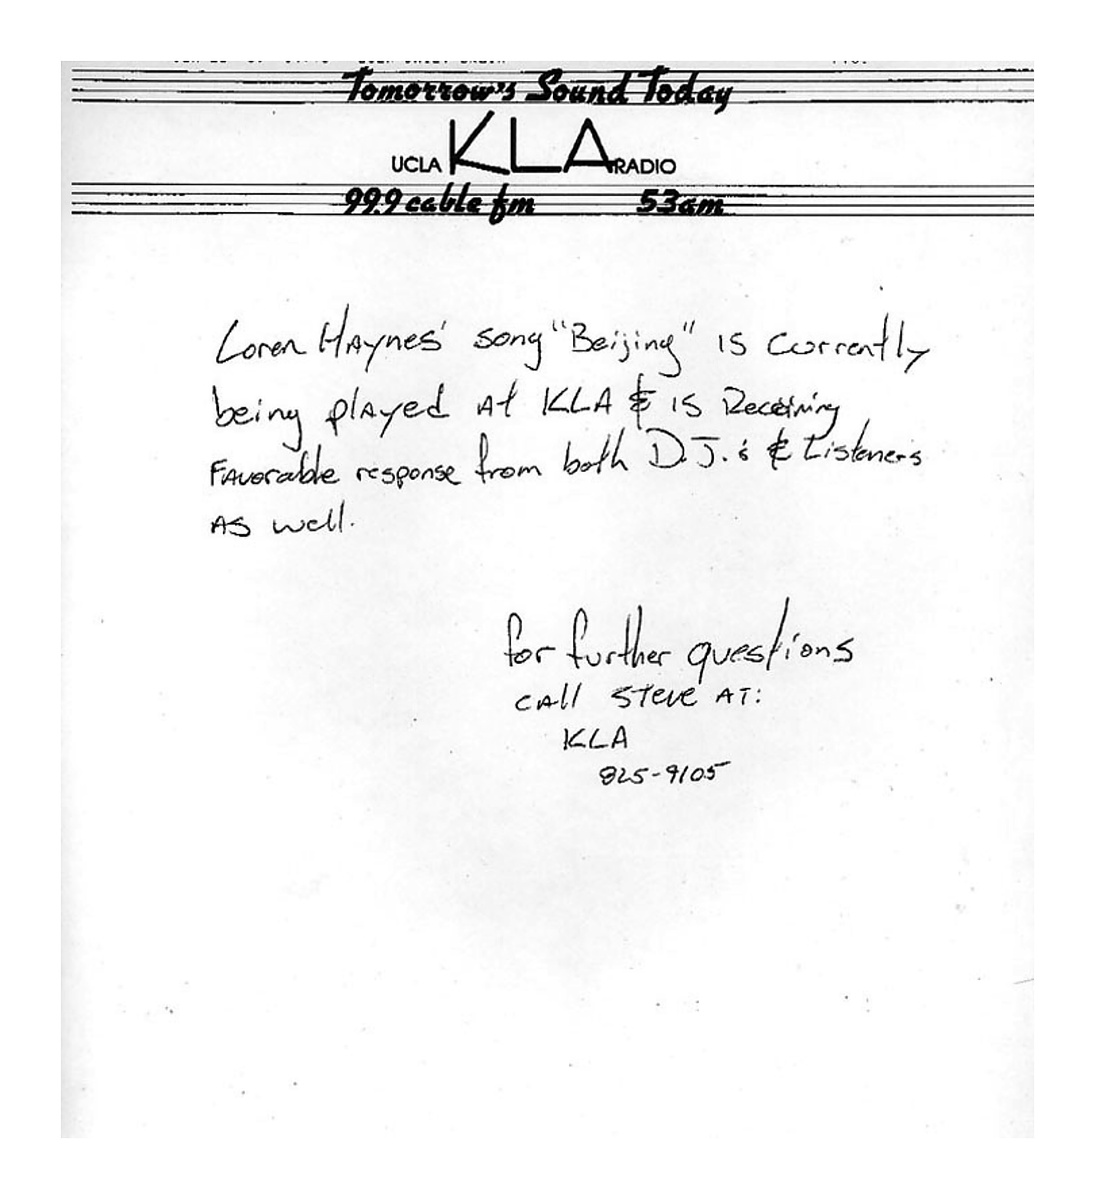 Tomorrow's Sound Today
UCLA KLA RADIO
99.9 cable fm 53am
Loren Haynes' song "Beijing" is currently
being played at KLA & is Receiving
Favorable response from both D.J.'s & Listeners
as well.
for further questions
call Steve at:
KLA
825-9105